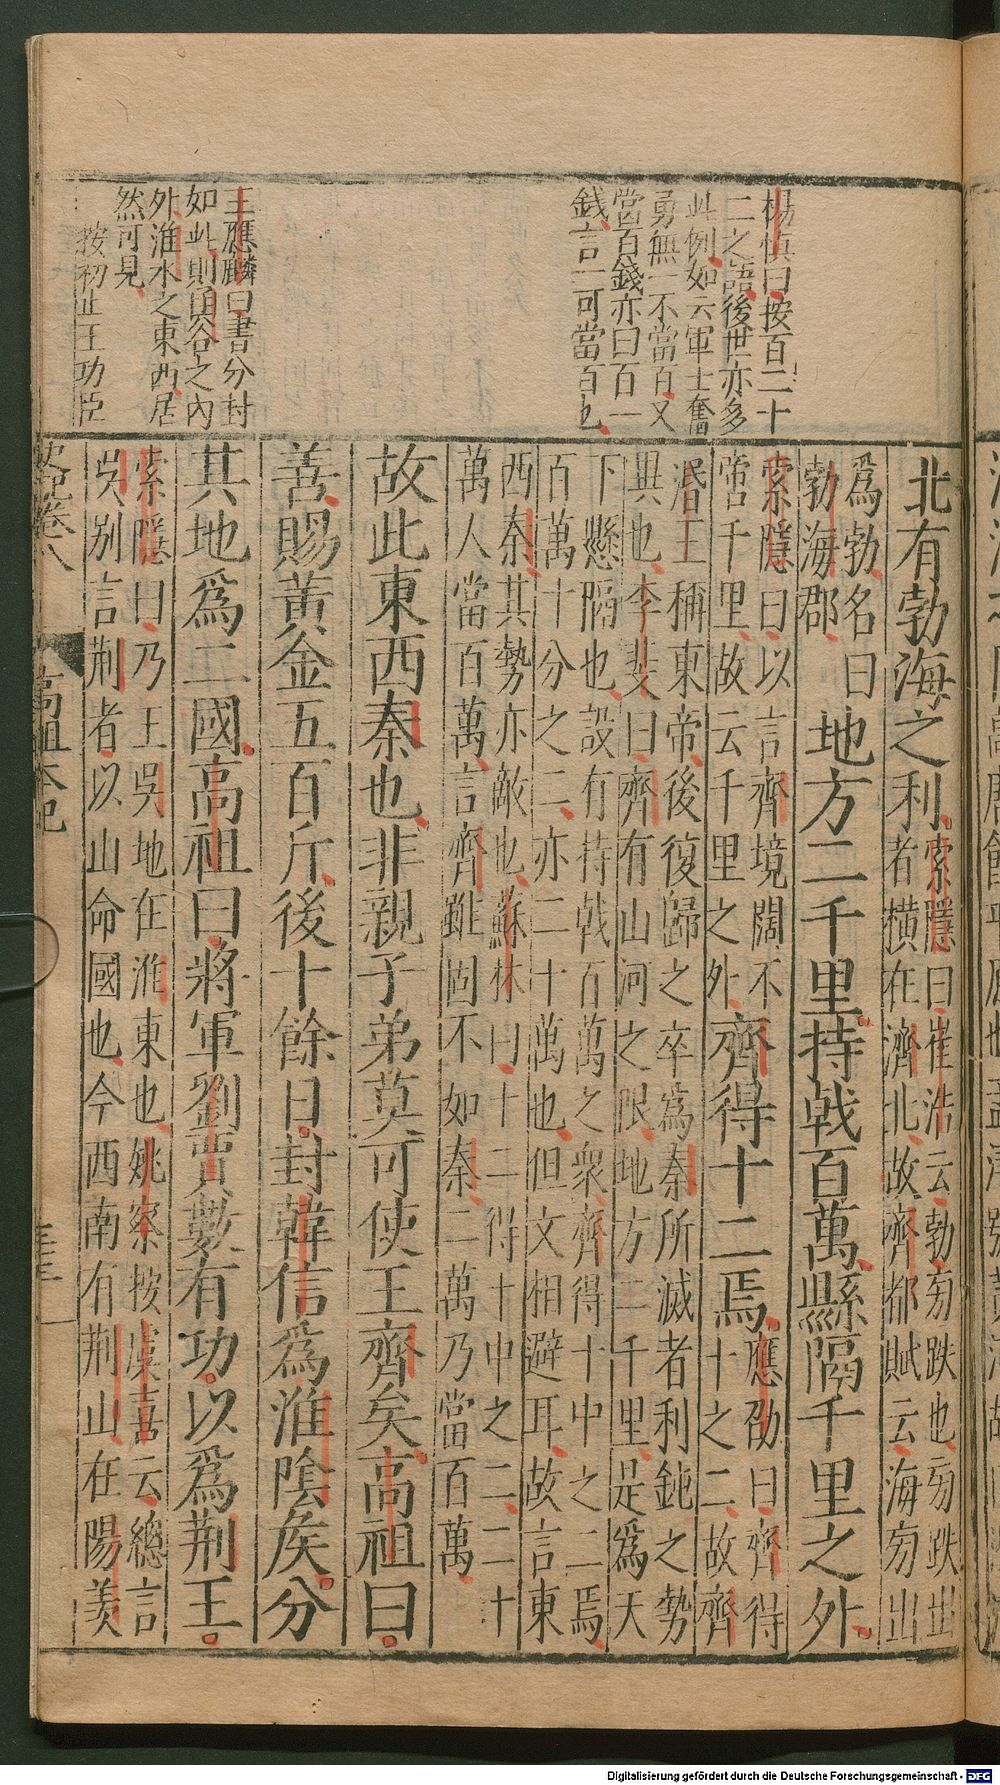 楊慎曰按百二十
二之語後世亦多
此例如云軍士奮
勇無一不當百又
當百錢亦曰百一
錢言一可當百也
王應麟曰書分封
如此則函谷之內
外淮水之東西居
然可見
按初止王功臣
北有勃海之利索隱曰崔浩云勃旁跌也旁跌出
者橫在濟北故齊都賦云海旁出
爲勃名曰
勃海郡
地方二千里持戟百萬縣隔千里之外
索隱曰以言齊境闊不
啻千里故云千里之外
齊得十二焉應劭曰齊得
十之二故齊
湣王稱東帝後復歸之卒爲秦所滅者利鈍之勢
異也李斐曰齊有山河之限地方二千里是爲天
下懸隔也設有持戟百萬之衆齊得十中之二焉
百萬十分之二亦二十萬也但文相避耳故言東
西秦其勢亦敵也蘇林曰十二得十中之二二十
萬人當百萬言齊雖固不如秦二萬乃當百萬
故此東西秦也非親子弟莫可使王齊矣高祖曰
善賜黃金五百斤後十餘日封韓信爲淮陰矦分
其地爲二國高祖曰將軍劉賈數有功以爲荆王
索隱曰乃王吳地在淮東也姚察按虞喜云總言
吳别言荆者以山命國也今西南有荆山在陽羨
史記卷八
高祖本紀
Digitalisierung gefördert durch die Deutsche Forschungsgemeinschaft - DFG